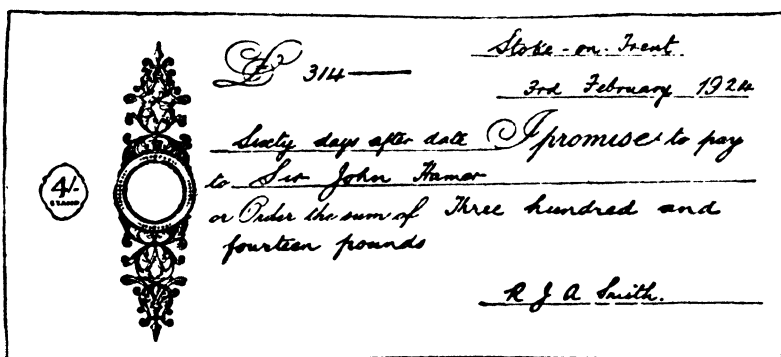 £ 314
Stoke-on-Trent.
3rd February 1924
Sixty days after date I promise to pay
4/-
to Sir John Hamar
or Order the sum of Three hundred and
fourteen pounds
R J A Smith.